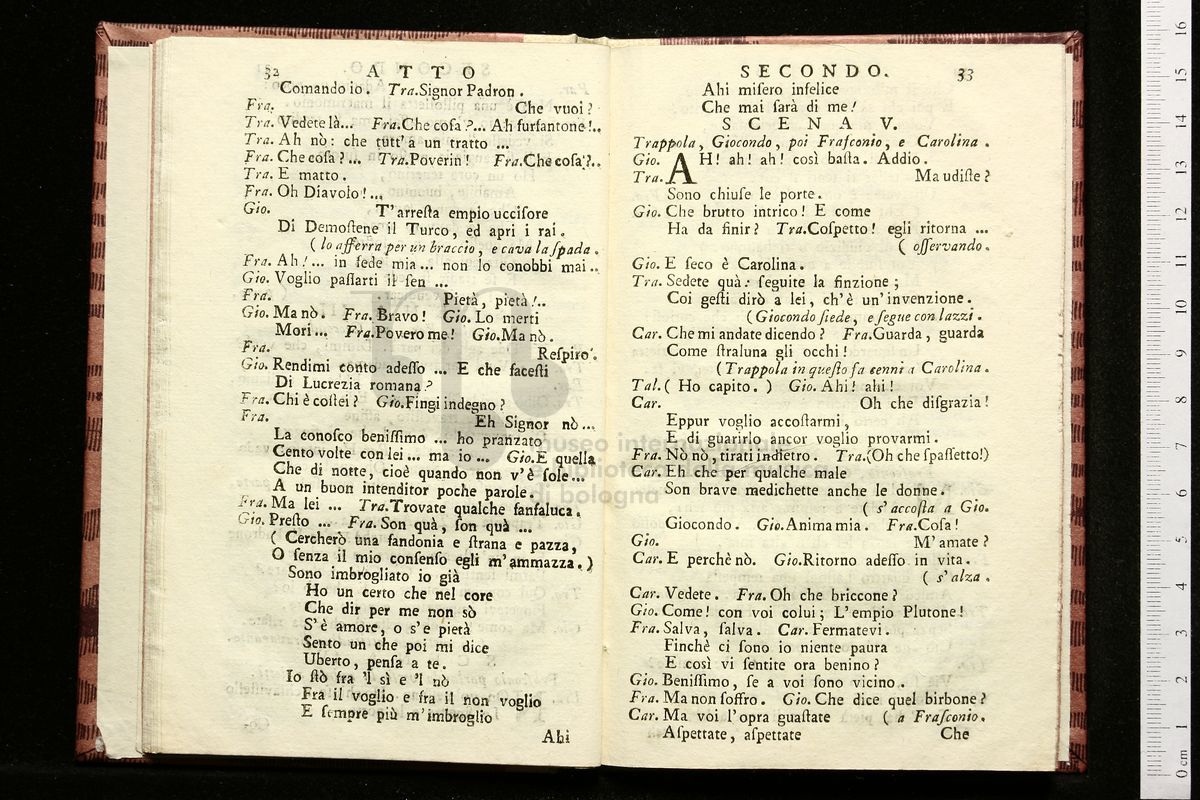 32 ATTO
Comando io. Tra.Signor Padron.
Fra. Che vuoi?
Tra. Vedete là... Fra.Che cosa?... Ah furfantone!..
Tra. Ah nò: che tutt' a un tratto ...
Fra. Che cosa?... Tra.Poverin! Fra.Che cosa?..
Tra. E matto.
Fra. Oh Diavolo!...
Gio. T'arresta empio uccisore
Di Demostene il Turco, ed apri i rai.
( lo afferra per un braccio, e cava la spada.
Fra. Ah!... in fede mia... non lo conobbi mai..
Gio. Voglio passarti il sen ...
Fra. Pietà, pietà!..
Gio. Ma nò. Fra. Bravo! Gio. Lo merti
Mori... Fra.Povero me! Gio.Ma nò.
Fra. Respiro.
Gio. Rendimi conto adesso ... E che facesti
Di Lucrezia romana?
Fra. Chi è costei? Gio.Fingi indegno?
Fra. Eh Signor nò...
La conosco benissimo ... ho pranzato
Cento volte con lei... ma io ... Gio.E quella
Che di notte, cioè quando non v'è sole...
A un buon intenditor poche parole.
Fra. Ma lei ... Tra.Trovate qualche fanfaluca.
Gio. Presto ... Fra. Son quà, son quà ...
( Cercherò una fandonia e strana e pazza,
O senza il mio consenso egli m'ammazza.)
Sono imbrogliato io già
Ho un certo che nel core
Che dir per me non sò
S'è amore, o s'e pietà
Sento un che poi mi dice
Uberto, pensa a te.
Io stò fra 'l sì e 'l nò
Fra il voglio e fra il non voglio
E sempre più m'imbroglio
Ahi
SECONDO. 33
Ahi misero infelice
Che mai sarà di me!
SCENA V.
Trappola, Giocondo, poi Frasconio, e Carolina.
Gio. AH! ah! ah! così basta. Addio.
Tra. Ma udiste?
Sono chiuse le porte.
Gio. Che brutto intrico! E come
Ha da finir? Tra.Cospetto! egli ritorna ...
( osservando.
Gio. E seco è Carolina.
Tra. Sedete quà: seguite la finzione;
Coi gesti dirò a lei, ch'è un'invenzione.
( Giocondo siede, e segue con lazzi.
Car. Che mi andate dicendo? Fra.Guarda, guarda
Come straluna gli occhi!
( Trappola in questo fa cenni a Carolina.
Tal. ( Ho capito. ) Gio. Ahi! ahi!
Car. Oh che disgrazia!
Eppur voglio accostarmi,
E di guarirlo ancor voglio provarmi.
Fra. Nò nò, tirati indietro. Tra.(Oh che spassetto!)
Car. Eh che per qualche male
Son brave medichette anche le donne.
( s'accosta a Gio.
Giocondo. Gio.Anima mia. Fra.Cosa!
Gio. M'amate?
Car. E perchè nò. Gio.Ritorno adesso in vita.
( s'alza.
Car. Vedete. Fra. Oh che briccone?
Gio. Come! con voi colui; L'empio Plutone!
Fra. Salva, salva. Car. Fermatevi.
Finchè ci sono io niente paura
E così vi sentite ora benino?
Gio. Benissimo, se a voi sono vicino.
Fra. Ma non soffro. Gio. Che dice quel birbone?
Car. Ma voi l'opra guastate ( a Frasconio.
Aspettate, aspettate Che
museo internazionale
e biblioteca della musica
di bologna
0 cm 1 2 3 4 5 6 7 8 9 10 11 12 13 14 15 16